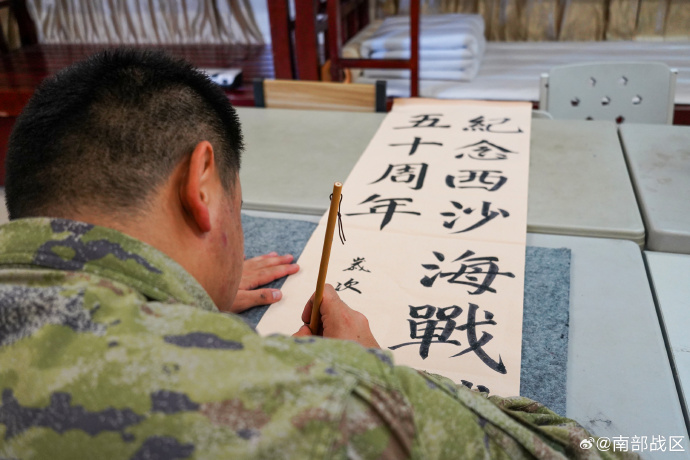 紀念西沙海戰
五十周年
@南部战区